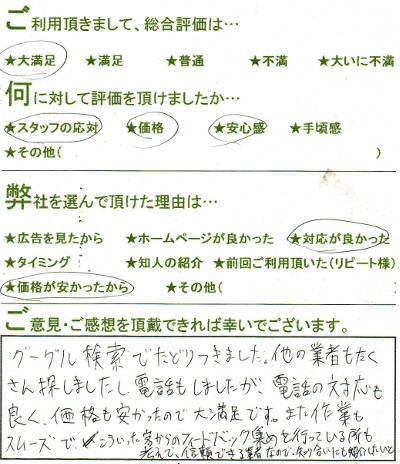 ご利用頂きまして、総合評価は…
★大満足 ★満足 ★普通 ★不満 ★大いに不満
何に対して評価を頂けましたか…
★スタッフの応対 ★価格 ★安心感 ★手頃感
★その他( )
弊社を選んで頂けた理由は…
★広告を見たから ★ホームページが良かった ★対応が良かった
★タイミング ★知人の紹介 ★前回ご利用頂いた(リピート様)
★価格が安かったから ★その他(
ご意見・ご感想を頂戴できれば幸いでございます。
グーグル検索でたどりつきました。他の業者もたく
さん探しましたし、電話もしましたが、電話の対応も
良く、価格も安かったので大満足です。また作業も
スムーズで、こういった客からのフィードバック集めを行っている所も
含めて、信頼できる業者なので、知り合いにも紹介したいと